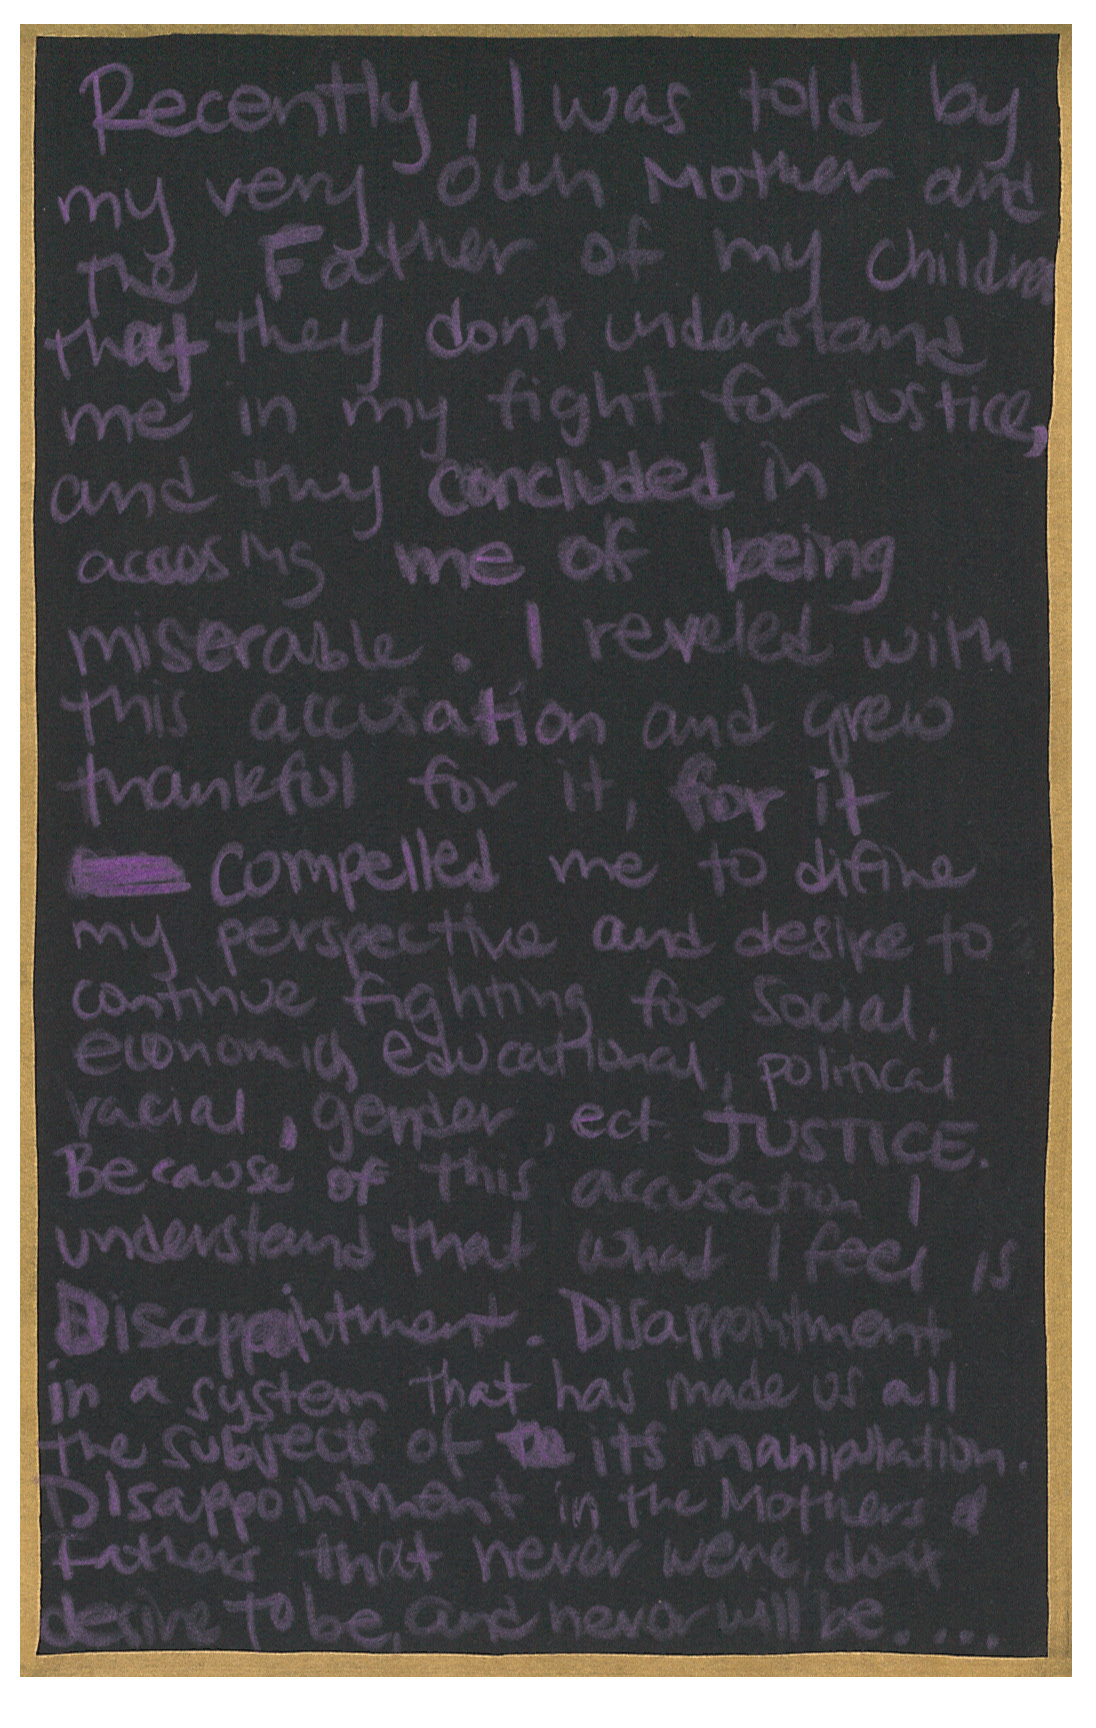 Recently, I was told by
my very own Mother and
the Father of my children
that they don't understand
me in my fight for justice,
and thy concluded in
accosing me of being
miserable. I reveled with
this accusation and grew
thankful for it, for it
compelled me to difine
my perspective and desire to
continue fighting for social,
economics educational, political
racial, gender, ect. JUSTICE.
Because of this accusation I
understand that what I feel is
Disappointment. Disappointment
in a system that has made us all
the subjects of its manipulation.
Disappointment in the Mothers &
Fathers that never were, dont
desire to be, and never will be....